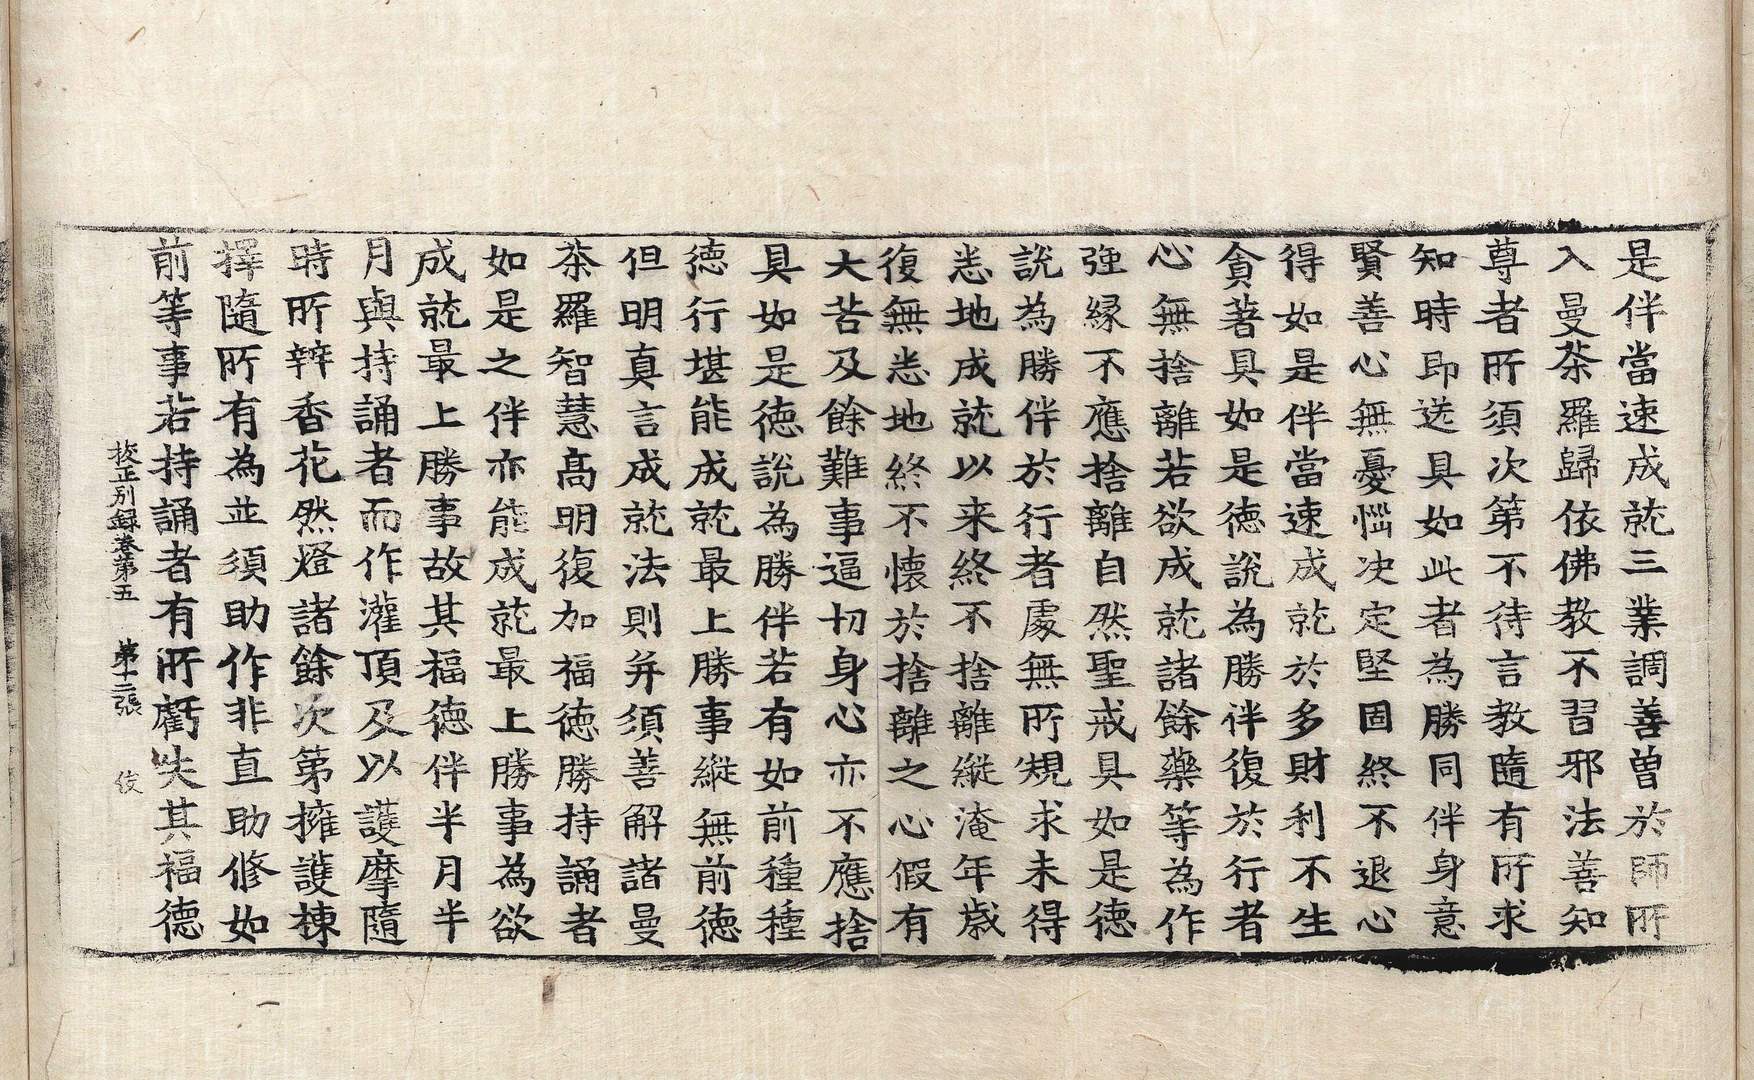 是伴當速成就三業調善曽於師所
入曼茶羅歸依佛教不習邪法善知
尊者所須次第不待言教隨有所求
知時即送具如此者為勝同伴身意
賢善心無憂惱决定堅固終不退心
得如是伴當速成就於多財利不生
貪著具如是德說為勝伴復於行者
心無捨離若欲成就諸餘藥等為作
強縁不應捨離自然聖戒具如是德
說為勝伴於行者處無所規求未得
悉地成就以来終不捨離縱淹年歲
復無悉地終不懷於捨離之心假有
大苦及餘難事逼切身心亦不應捨
具如是德說為勝伴若有如前種種
德行堪能成就最上勝事縱無前德
但明真言成就法則并須善解諸曼
茶羅智慧高明復加福德勝持誦者
如是之伴亦能成就最上勝事為欲
成就最上勝事故其福德伴半月半
月與持誦者而作灌頂及以護摩隨
時所辨香花然燈諸餘次第擁護棟
擇隨所有為並須助作非直助修如
前等事若持誦者有所虧失其福德
挍正別録卷第五　第十二張　伎